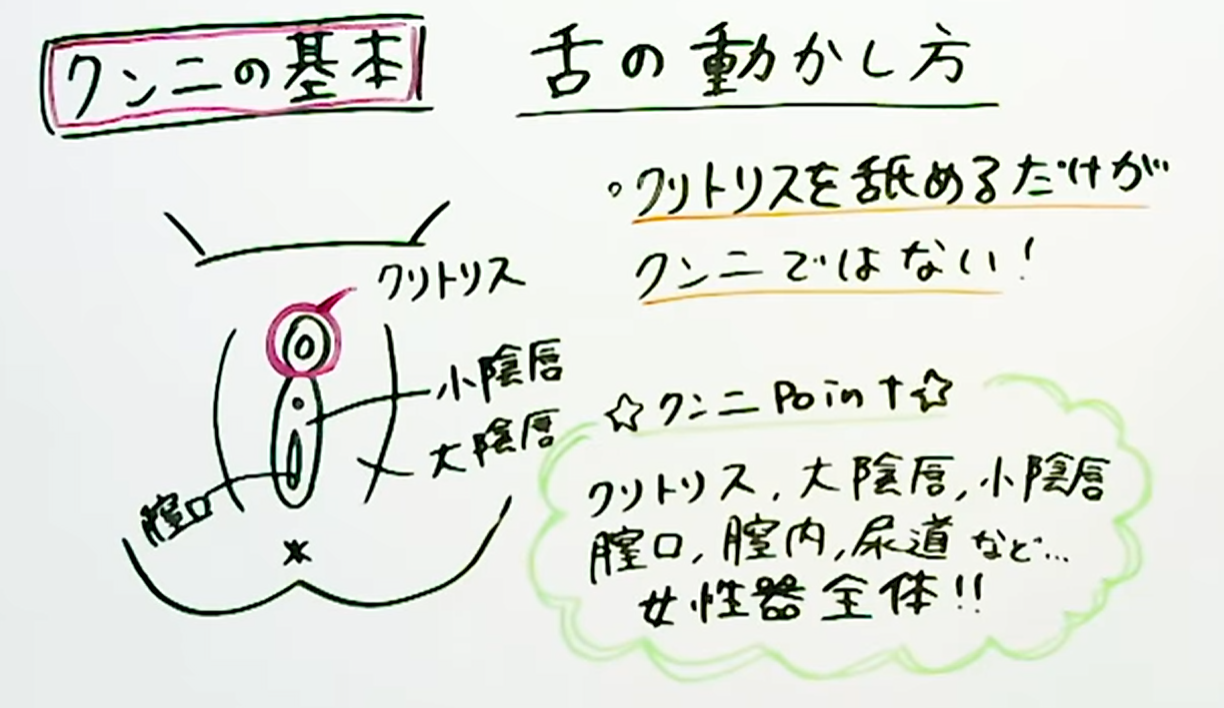 クンニの基本
舌の動かし方
・クリトリスを舐めるだけが
クンニではない!
クリトリス
小陰唇
大陰唇
膣口
☆クンニPoint☆
クリトリス,大陰唇,小陰唇
膣口,膣内,尿道など…
女性器全体!!